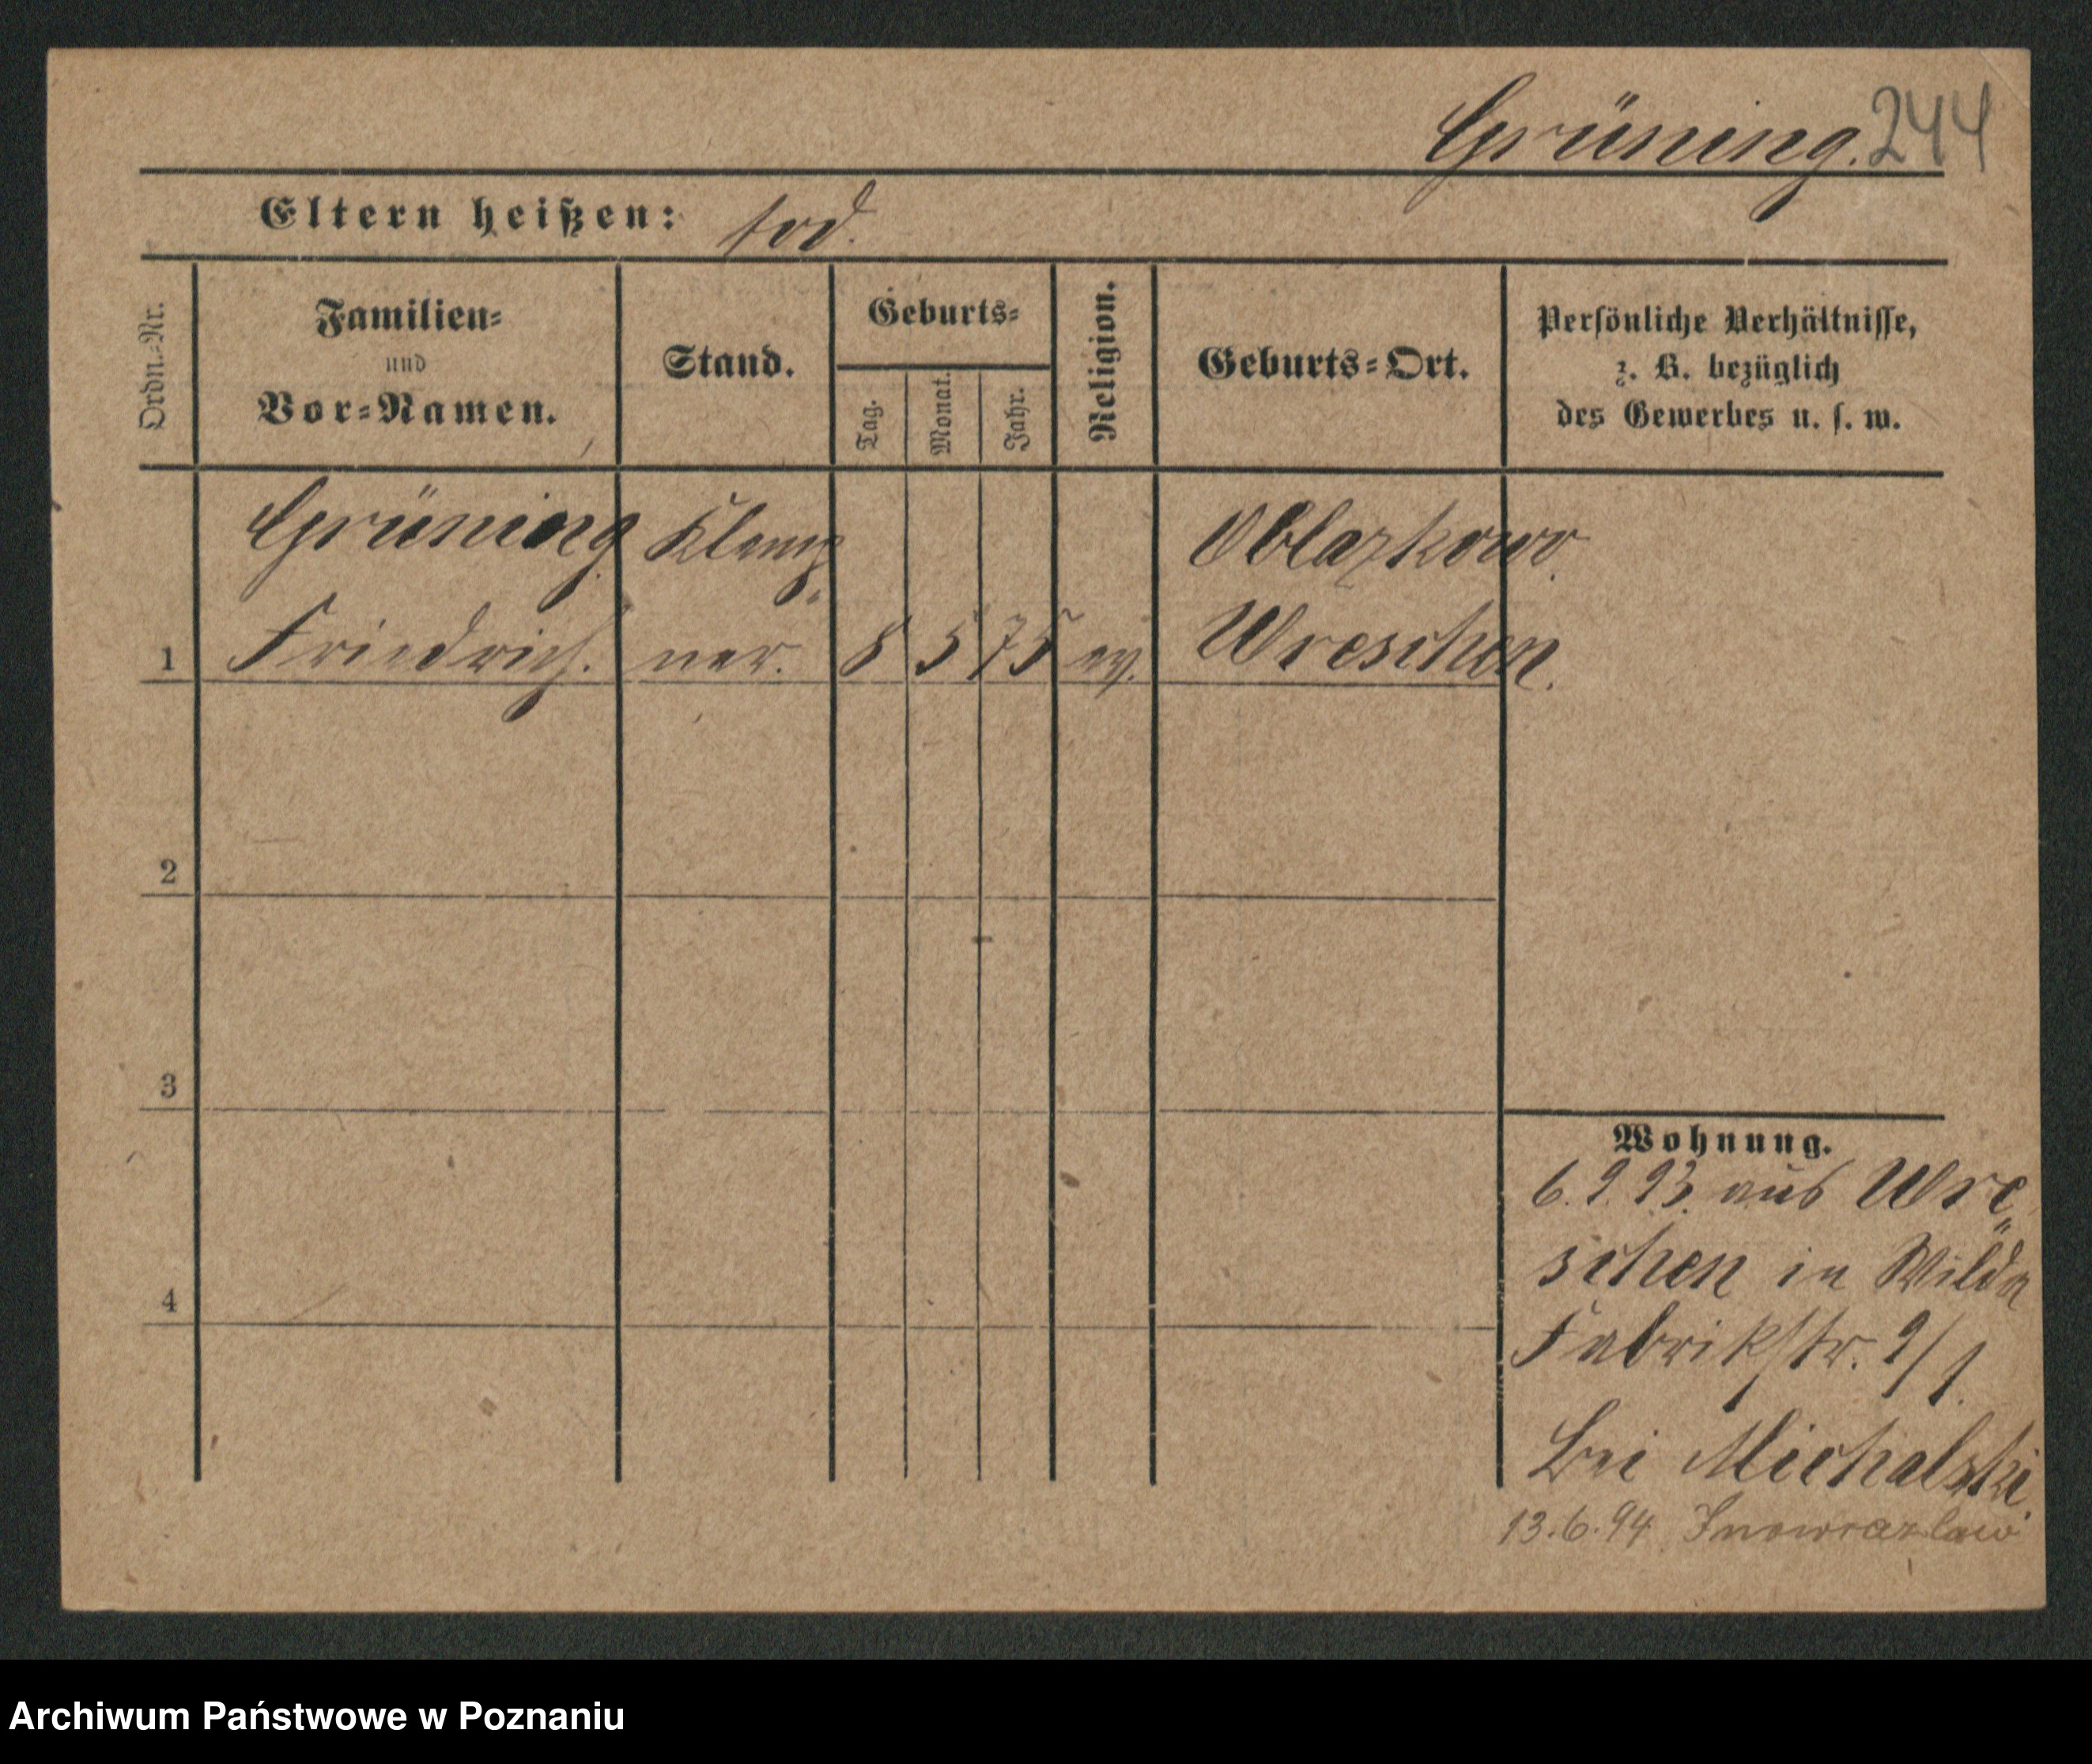 Grüning. 244
Eltern heißen: tod.
Ordn.-Nr.
Familien-
und
Vor-Namen.
Stand.
Geburts-
Tag.
Monat.
Jahr.
Religion.
Geburts-Ort.
Persönliche Verhältnisse,
z. B. bezüglich
des Gewerbes u. s. w.
Grüning Klemp Oblazkowo.
1 Friedrich. ner. 8 5 75 ev. Wreschen.
2
3
4
Wohnung.
6.9.93. aus Wre
schen in Wilda
Fabrikstr. 9/1.
Bei Michalski.
13.6.94 Inowrazlaw
Archiwum Państwowe w Poznaniu